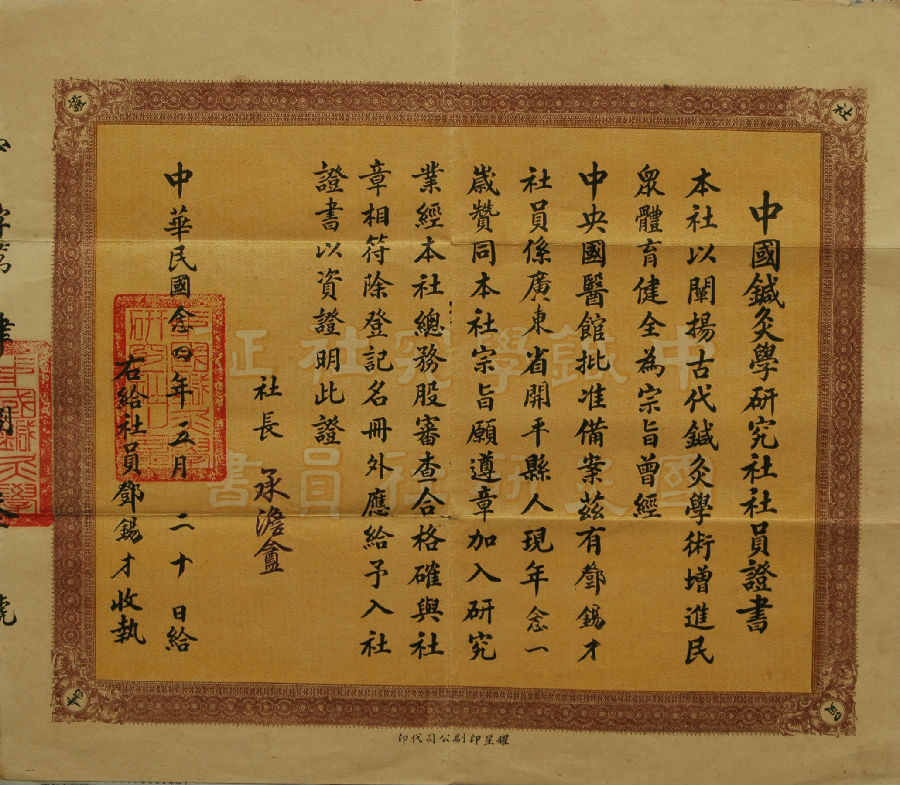 中國鍼灸學研究社社員證書
本社以闡揚古代鍼灸學術增進民
眾體育健全為宗旨曾經
中央國醫館批准備案茲有鄧錫才
社員係廣東省開平縣人現年念一
歲贊同本社宗旨願遵章加入研究
業經本社總務股審查合格確與社
章相符除登記名冊外應給予入社
證書以資證明此證
社長 承澹盦
中華民國念四年五月二十日給
右給社員鄧錫才收執
字第 肆 號
耀星印刷公司代印